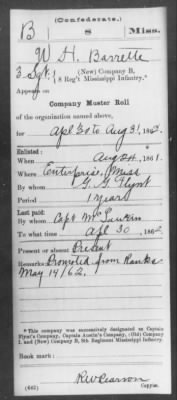 (Confederate.)
B 8 Miss.
W. H. Barrette
3 Sgt., (New) Company B,
8 Reg't Mississippi Infantry.*
Appears on
Company Muster Roll
of the organization named above,
for Apl 30 to Aug 31, 1862.
Enlisted:
When Aug 24, 1861.
Where Enterprise, Miss
By whom G. G. Flynt
Period 1 years
Last paid:
By whom Capt McLaurin
To what time Apl 30, 1862
Present or absent Present
Remarks: Promoted from Ranks
May 14/62.
*This company was successively designated as Captain
Flynt's Company, Captain Austin's Company, (Old) Company
I, and (New) Company B, 8th Regiment Mississippi Infantry.
Book mark:
R W Pearson
(642) Copyist.